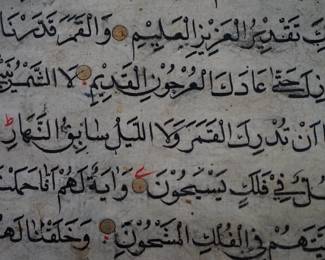 كَ تَقْدِيرُ الْعَزِيزِ الْعَلِيمِ وَالْقَمَرَ قَدَّرْنَا
زِلَ حَتَّى عَادَ كَالْعُرْجُونِ الْقَدِيمِ لَا الشَّمْسُ يَنْ
أَنْ تُدْرِكَ الْقَمَرَ وَلَا اللَّيْلُ سَابِقُ النَّهَارِ
لٌّ فِي فَلَكٍ يَسْبَحُونَ وَآيَةٌ لَهُمْ أَنَّا حَمَلْنَ
يَّتَهُمْ فِي الْفُلْكِ الْمَشْحُونِ وَخَلَقْنَا لَهُ